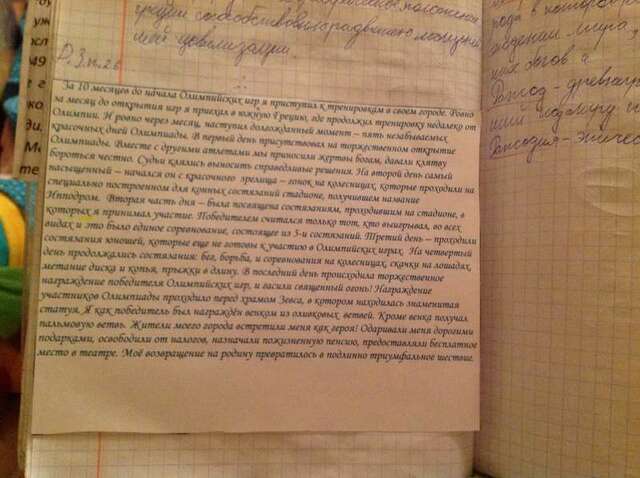 греции способствовало развитию
цивилизации.
За 10 месяцев до начала Олимпийских игр я приступил к тренировкам в своём городе. Ровно
за месяц до открытия игр я приехал в южную Грецию, где продолжил тренировку недалеко от
Олимпии. И ровно через месяц, наступил долгожданный момент – пять незабываемых
красочных дней Олимпиады. В первый день присутствовал на торжественном открытие
Олимпиады. Вместе с другими атлетами мы приносили жертвы богам, давали клятву
бороться честно. Судьи клялись выносить справедливые решения. На второй день самый
насыщенный – начался он с красочного зрелища – гонок на колесницах, которые проходили на
специально построенном для конных состязаний стадионе, получившем название
Ипподром. Вторая часть дня – была посвящена состязаниям, проходившим на стадионе, в
которых я принимал участие. Победителем считался только тот, кто выигрывал, во всех
видах и это было единое соревнование, состоящее из 5-и состязаний. Третий день – проходили
состязания юношей, которые еще не готовы к участию в Олимпийских играх. На четвертый
день продолжались состязания: бег, борьба, и соревнования на колесницах, скачки на лошадях,
метание диска и копья, прыжки в длину. В последний день происходила торжественное
награждение победителя Олимпийских игр, и гасили священный огонь! Награждение
участников Олимпиады проходило перед храмом Зевса, в котором находилась знаменитая
статуя. Я как победитель был награждён венком из оливковых ветвей. Кроме венка получал
пальмовую ветвь. Жители моего города встретили меня как героя! Одаривали меня дорогими
подарками, освободили от налогов, назначали пожизненную пенсию, предоставляли бесплатное
место в театре. Моё возвращение на родину превратилось в подлинно триумфальное шествие.